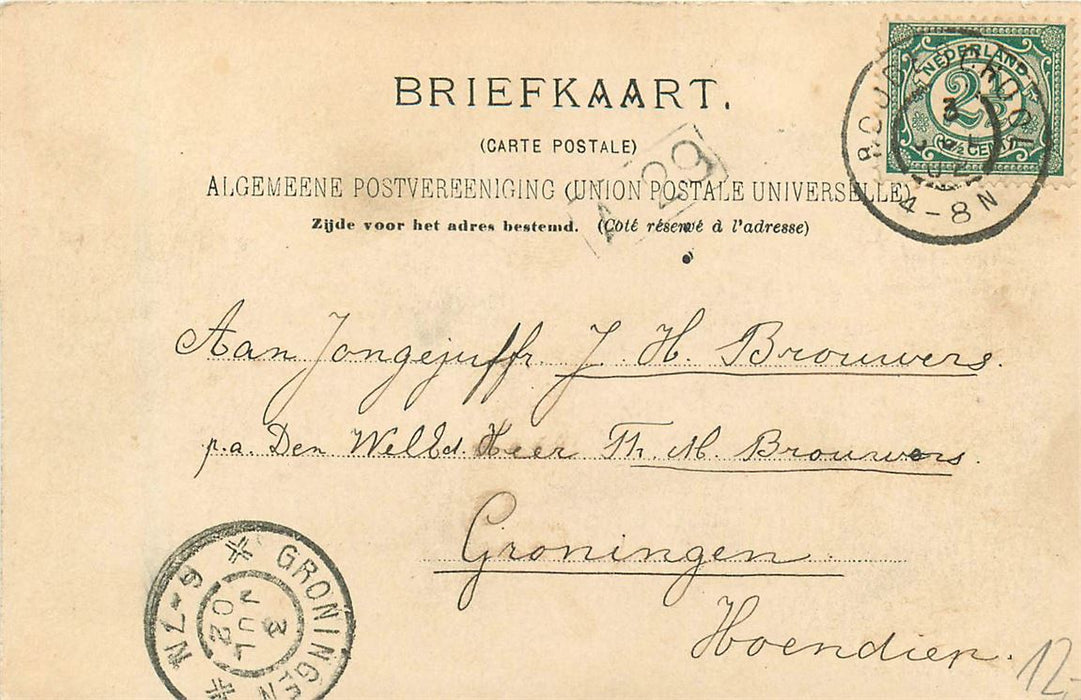 BRIEFKAART.
(CARTE POSTALE)
ALGEMEENE POSTVEREENIGING (UNION POSTALE UNIVERSELLE)
Zijde voor het adres bestemd. (Côté réservé à l'adresse)
NEDERLAND
2½
2½ CENT
3
4-8N
29
Aan Jongejuffr. J. H. Brouwers.
p.a. Den WelEd. Heer Th. M. Brouwers.
Groningen.
Hoendiep.
GRONINGEN
6-7N
3
JUL
02
12,-